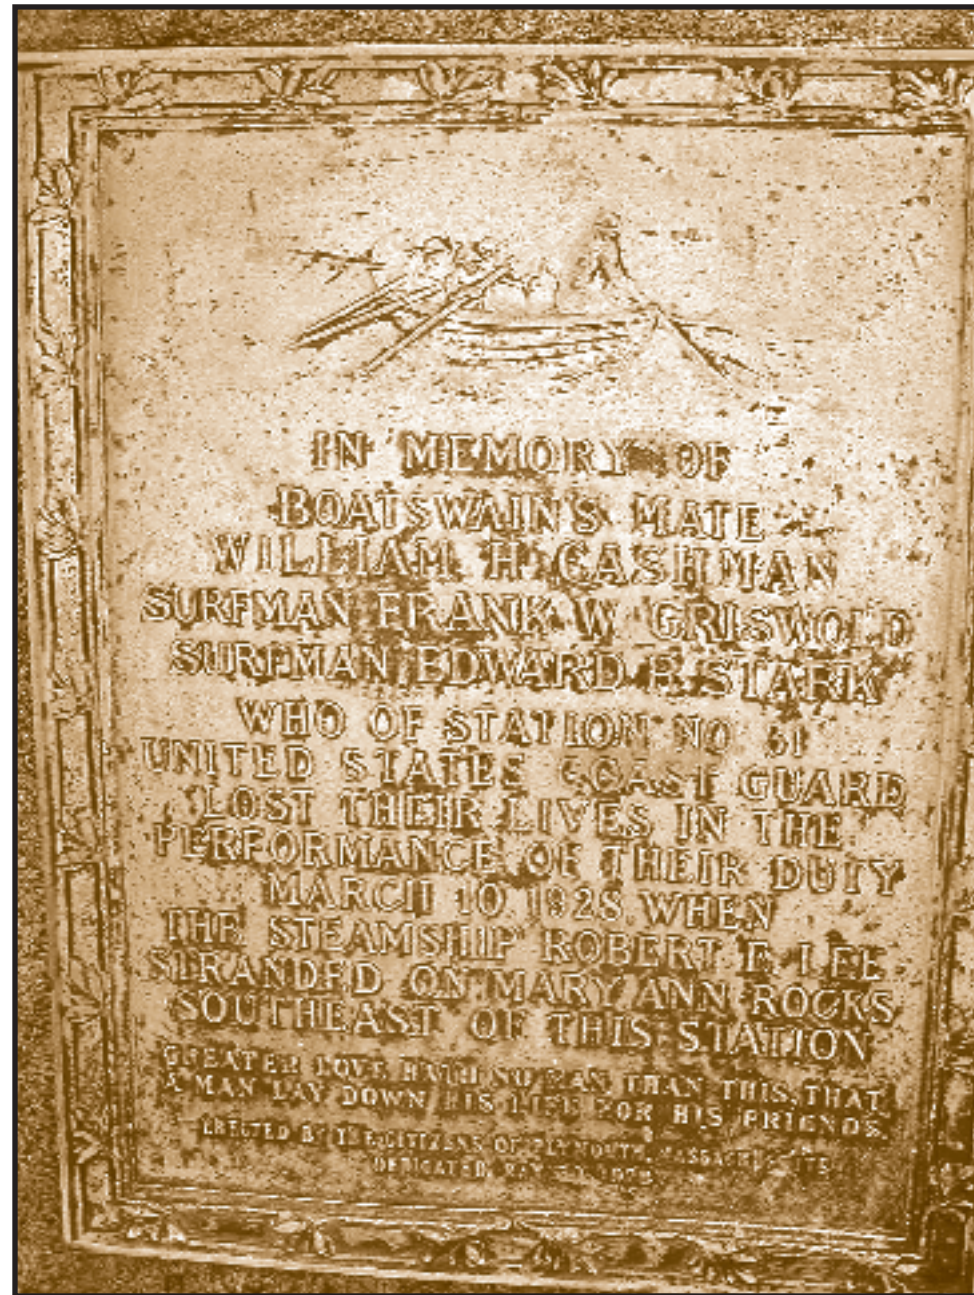 IN MEMORY OF
BOATSWAIN'S MATE
WILLIAM H. CASHMAN
SURFMAN FRANK W. GRISWOLD
SURFMAN EDWARD P. STARK
WHO OF STATION NO 31
UNITED STATES COAST GUARD
LOST THEIR LIVES IN THE
PERFORMANCE OF THEIR DUTY
MARCH 10, 1928, WHEN
THE STEAMSHIP ROBERT E. LEE
STRANDED ON MARY ANN ROCKS
SOUTHEAST OF THIS STATION
GREATER LOVE HATH NO MAN THAN THIS, THAT
A MAN LAY DOWN HIS LIFE FOR HIS FRIENDS.
ERECTED BY THE CITIZENS OF PLYMOUTH, MASSACHUSETTS
DEDICATED